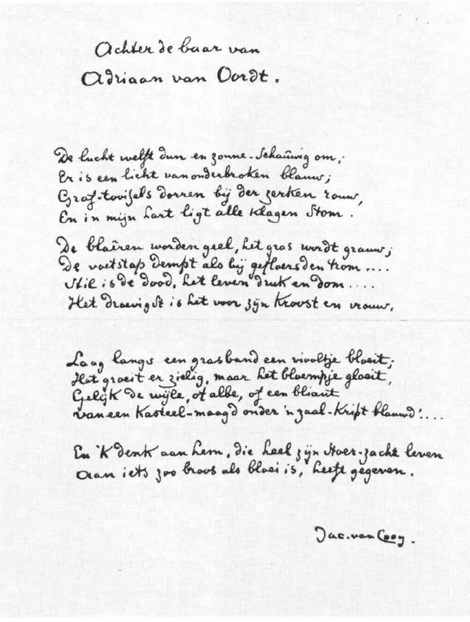 Achter de baar van
Adriaan van Oordt.
De lucht welft dun en zonne-schaûwig om;
Er is een licht van onderbroken blauw;
Graf-tooisels dorren bij der zerken rouw,
En in mijn hart ligt alle klagen stom.
De blaêren worden geel, het gras wordt grauw;
De voetstap dempt als bij gefloersden trom....
Stil is de dood, het leven druk en dom....
Het droevigst is het voor zijn kroost en vrouw.
Laag langs een grasband een viooltje bloeit;
Het groeit er zielig, maar het bloempje gloeit,
Gelijk de wijle, of albe, of een bliaut
van een kasteel-maagd onder 'n zaal-kript blauwd!....
En 'k denk aan hem, die heel zijn stoer-zacht leven
Aan iets zoo broos als bloei is, heeft gegeven.
Jac. van Looy.